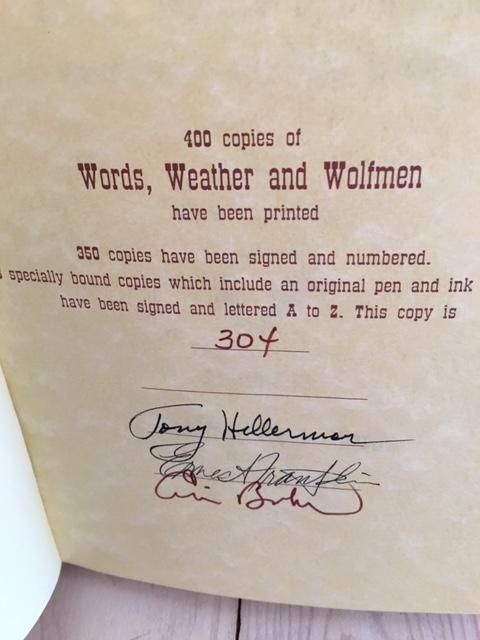 400 copies of
Words, Weather and Wolfmen
have been printed
350 copies have been signed and numbered.
specially bound copies which include an original pen and ink
have been signed and lettered A to Z. This copy is
304
Tony Hillerman
Ernest Franklin